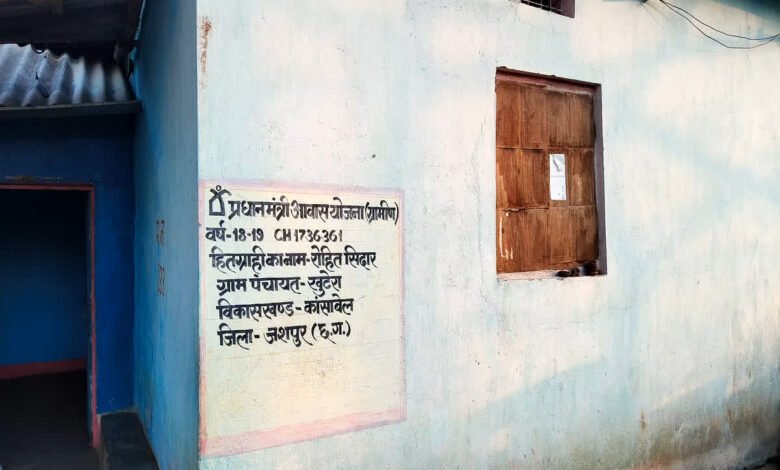 प्रधानमंत्री आवास योजना (ग्रामीण)
वर्ष-18-19 CH1736361
हितग्राही का नाम-रोहित सिदार
ग्राम पंचायत-खुटेरा
विकासखण्ड-कांसाबेल
जिला-जशपुर (छ.ग.)